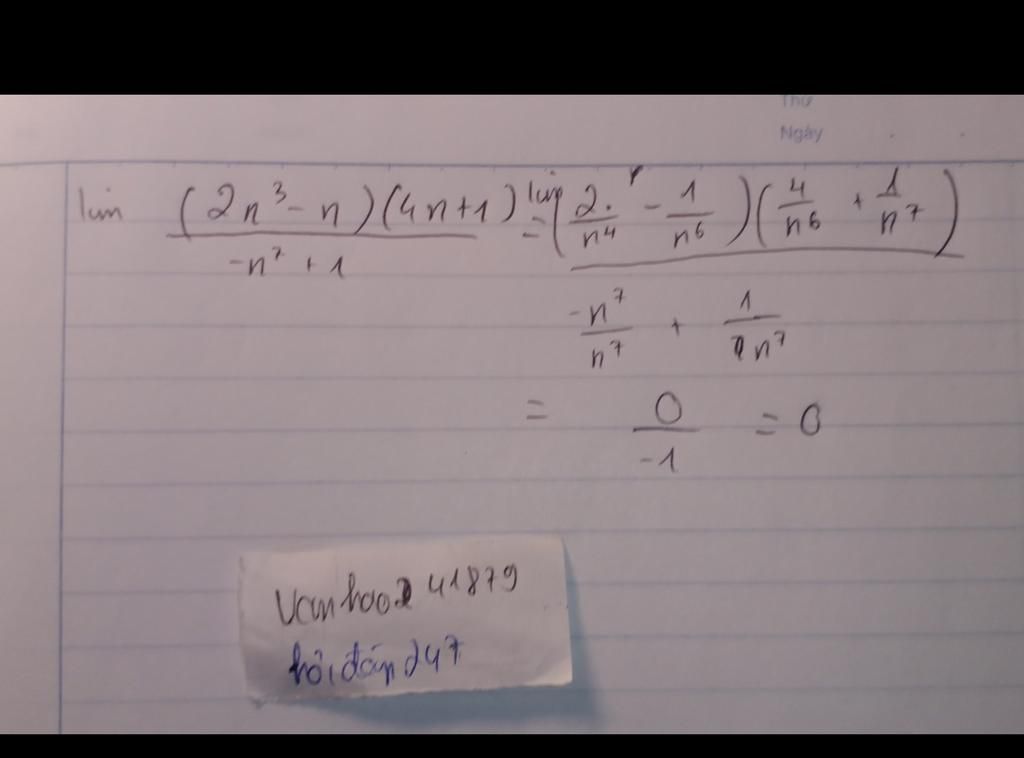 Thứ
Ngày
lim (2n³ - n)(4n+1) / (-n⁷ + 1) = lim (2/n⁴ - 1/n⁶)(4/n⁶ + 1/n⁷) / (-n⁷/n⁷ + 1/n⁷)
= 0/-1 = 0
Vanhoo2 41879
hỏi đáp 247